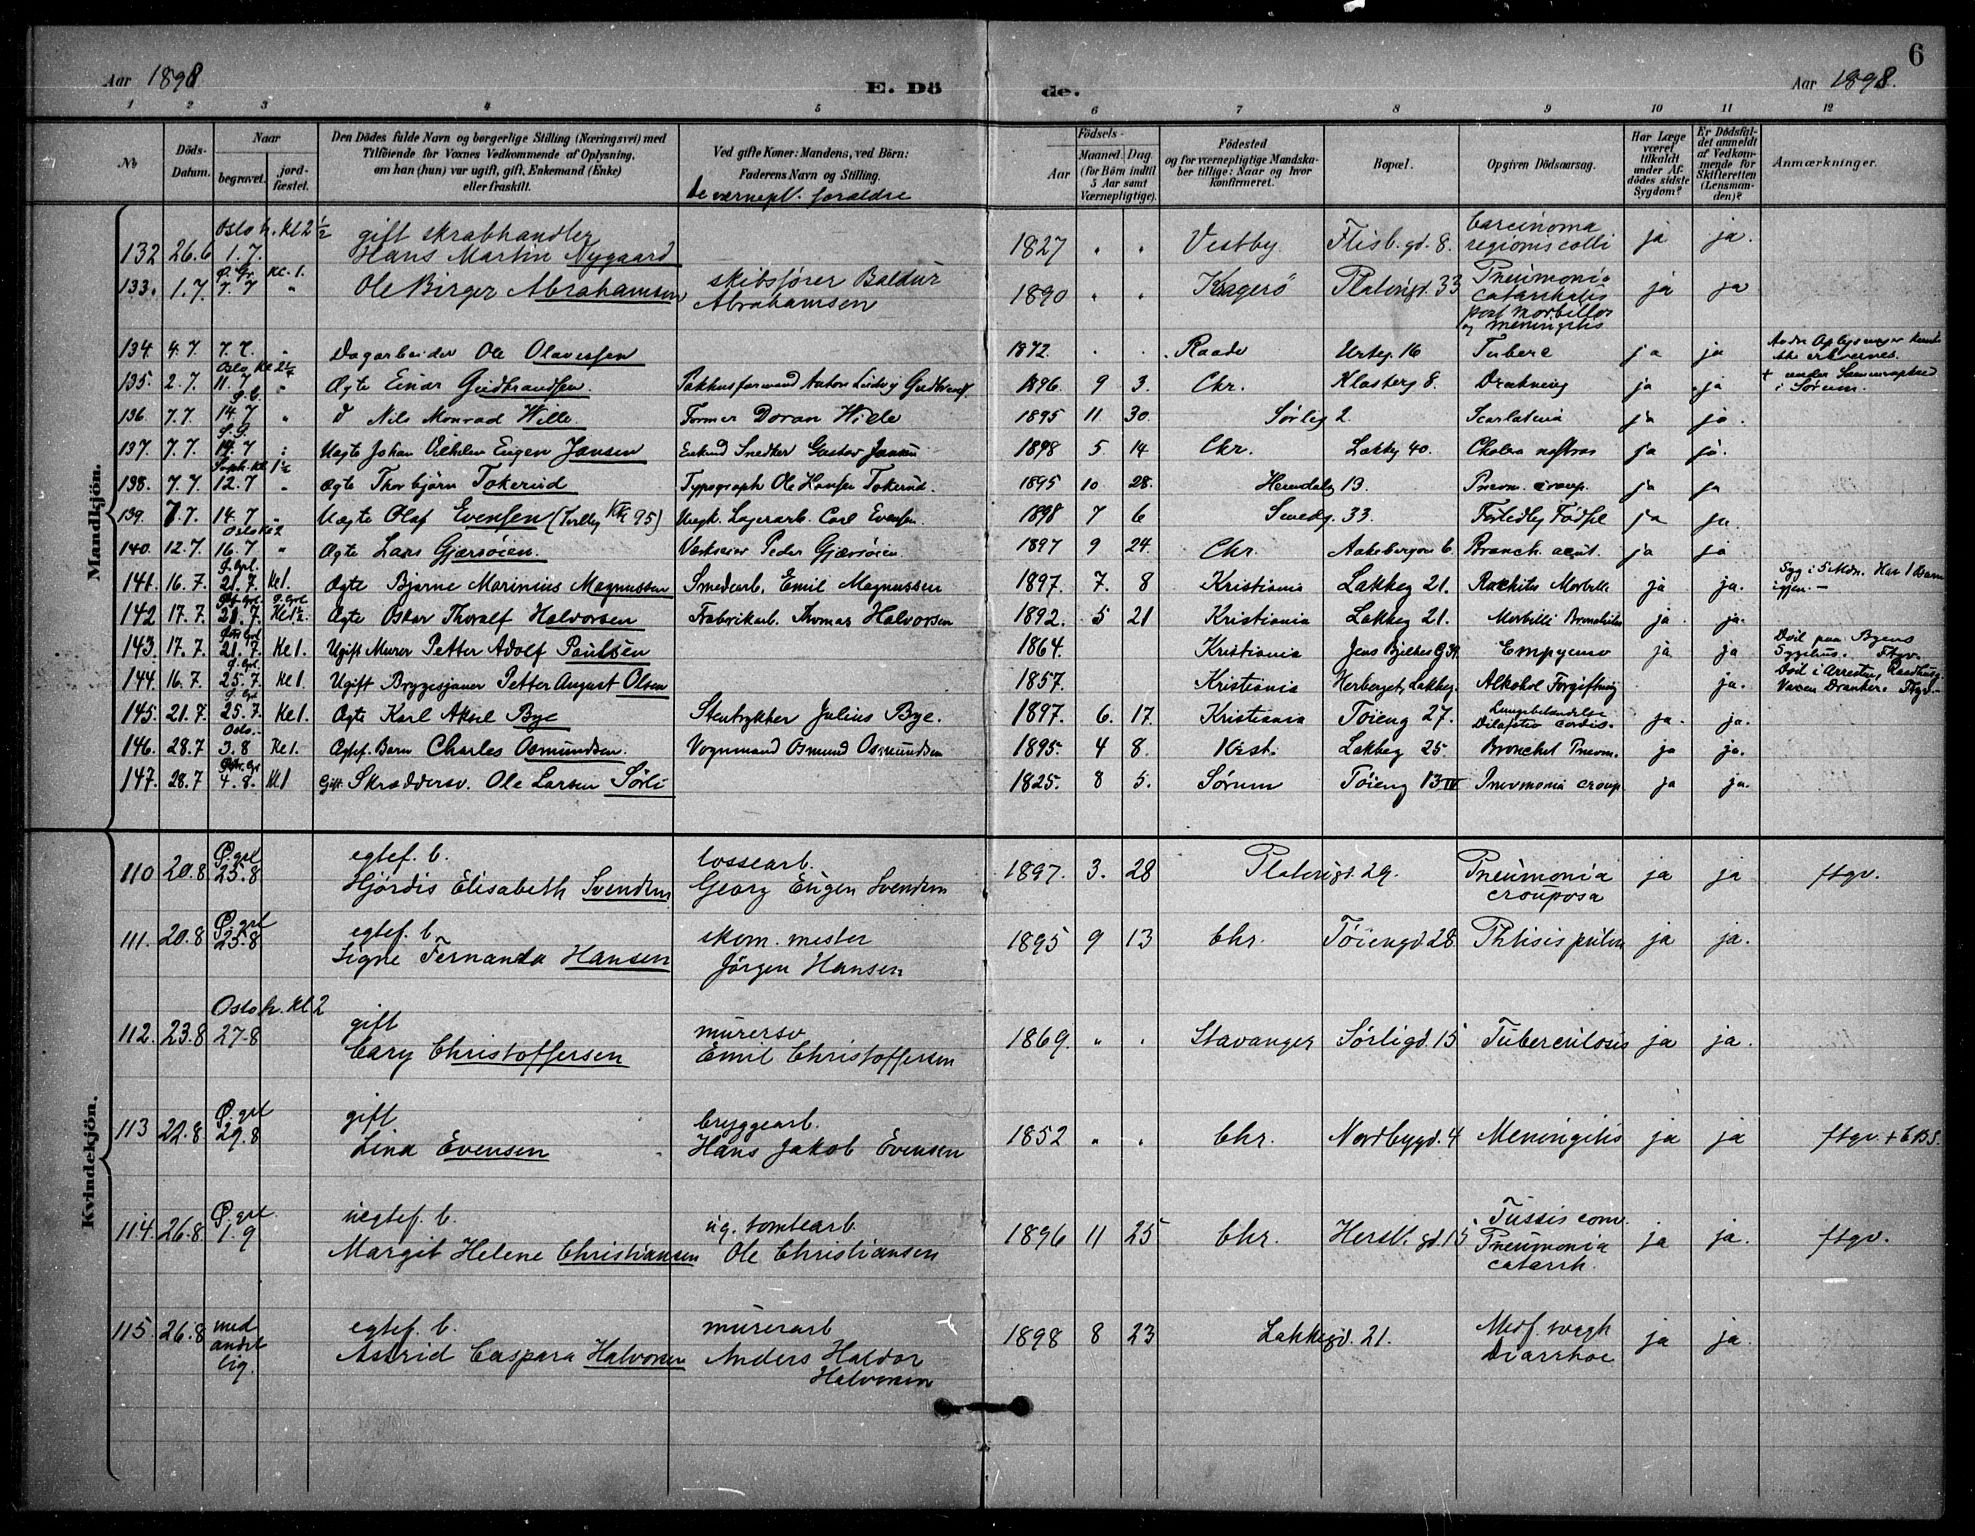 6
Aar 1898
E. Dö de.
Aar 1898.
1 2 3 4 5 6 7 8 9 10 11 12
No
Döds-Datum.
Naar
begravet.
jord-fæstet.
Den Dödes fulde Navn og borgerlige Stilling (Næringsvei) med
Tilföiende for Voxnes Vedkommende af Oplysning,
om han (hun) var ugift, gift, Enkemand (Enke)
eller fraskilt.
Ved gifte Koner: Mandens, ved Börn:
Faderens Navn og Stilling.
De værnepl. forældre
Födsels-
Aar
Maaned. Dag
(for Börn indtil
5 Aar samt
Værnepligtige).
Födested
og for værnepligtige Mandska-
ber tillige: Naar og hvor
konfirmeret.
Bopæl.
Opgiven Dödsaarsag.
Har Læge
været
tilkaldt
under Af-
dödes sidste
Sygdom?
Er Dödsfal-
det anmeldt
af Vedkom-
mende for
Skifteretten
(Lensman-
den)?
Anmærkninger.
Mandkjön.
Oslo k. Kl 2 1/2 gift skrabhandler Carcinoma
132 26.6 1.7. Hans Martin Nygaard 1827 " " Vestby Flisb. gd. 8. regionis colli ja ja.
Ø. Gr. Kl. 1. skibsfører Baldur Pneumonia
133. 1.7. 7.7 " Ole Birger Abrahamsen Abrahamsen 1890 " " Kragerö Platougd. 33 catarrhalis ja ja
post morbillos
og meningitis
134. 4.7. 7.7. " Dagarbeider Ole Olavesen 1872. . . Raade Urteg. 16 Tuberc ja ja
135. 2.7. 11.7 " Ægte Einar Gudbrandsen. Pakhusformand Anton Ludvig 1896. 9 3. Chr. 8. Drukning ja ja
i Sørum.
136. 7.7. 14.7 " Nils Monrad Wille. Former Wille 1895 11 30. Sørlig 2. Scarlatina ja ja
137. 7.7. 14.7 Uægte Johan Vilhelm Eugen Jansen Snedker Gustav Jansen 1898 5 14 Chr. Lakkeg 40. Cholera nostras ja ja.
138. 7.7. 12.7 " Ægte Thorbjørn Tokerud Typograph Ole Hansen Tokerud. 1895 10 28. 13. Pnevm. croup. ja ja
139. 7.7. 14.7 " Uægte Olaf Evensen Ungk. Lagerarb. Carl Evensen. 1898 7 6 Smedg. 33. Fortidlig Fødsel ja ja.
Oslo Kl 2
140. 12.7. 16.7 " Ægte Lars Gjærsöien. Peder Gjærsöien. 1897 9 24. Chr. Aakebergvn 6. Bronch. acut. ja ja
141. 16.7. 21.7. Kl 1. Ægte Bjarne Marinius Magnussen Smedearb. Emil Magnussen 1897. 7. 8 Kristiania Lakkeg 21. Rachitis Morbilli ja ja. Syg i 5 Mdr. Har 1 Barn
igjen.—
142 17.7. 21.7. Kl 1½. Ægte Oskar Thoralf Halvorsen Fabrikarb. Thomas Halvorsen 1892. 5 21 Kristiania Lakkeg 21. Morbilli ja ja.
143. 17.7. 21.7. Kl 1. Ugift Murer Petter Adolf Paulsen 1864. Kristiania Jens Bjelkes G. Empyema ja ja Død paa Byens
Sygehus. Ftgv.
144. 16.7. 25.7. Kl 1. Ugift Bryggesjauer Petter August Olsen 1857. Kristiania Herberget, Lakkeg. Alkohol Forgiftning ja. Død i Arresten,
145. 21.7. 25.7. Kl 1. Ægte Karl Aksel Bye Stentrykker Julius Bye. 1897. 6. 17. Kristiania Töieng 27. cordis. ja. ja.
Oslo.
146. 28.7 3.8 Kl 1. Ægtef. Barn Charles Osmundsen. Vognmand Osmund Osmundsen 1895. 4 8. Krist. Lakkeg 25. Bronchit Pnevm. ja ja.
147. 28.7 4.8. Kl 1 Gift Skræddersv. Ole Larsen Sörli 1825. 8 5. Sörum Töieng 13 IV Pnevmonia croup. ja ja.
Kvindekjön.
Ø. grl egtef. b. tossearb. Pneumonia
110 20.8 25.8 Hjördis Elisabeth Svendsen Georg Eugen Svendsen 1897. 3. 28 Platougd. 29. crouposa ja ja ftgv.
Ø. grl egtef. b. skom. mester
111. 20.8 25.8 Signe Fernanda Hansen Jörgen Hansen 1895 9 13 Chr. Töiengd. 28. Phtisis pulm ja ja.
Oslo k. Kl 2 gift murersv
112. 23.8 27-8 Cary Christoffersen Emil Christoffersen 1869. " . Stavanger Sörligd. 15 Tuberculosis ja ja.
Ø. grl gift. bryggearb.
113 22.8 29.8 Lina Evensen Hans Jakob Evensen 1852 " " Chr. Nordbygd. 4 Meningitis ja ja ftgv + 6 BS.
Ø. grl. uegtef. b. ug. tomtearb Tussis conv.
114. 26.8 1.9 Margit Helene Christiansen Ole Christiansen 1896 11 25 Chr. Hersl. gd. 15 Pneumonia ja ja. ftgv.
catarrh.
115. 26.8 med andet lig. egtef. b. murerarb
Astrid Caspara Halvorsen Anders Haldor Halvorsen 1898 8 23 Lakkegd. 21. Medf. svagh Diarrhoe ja ja.